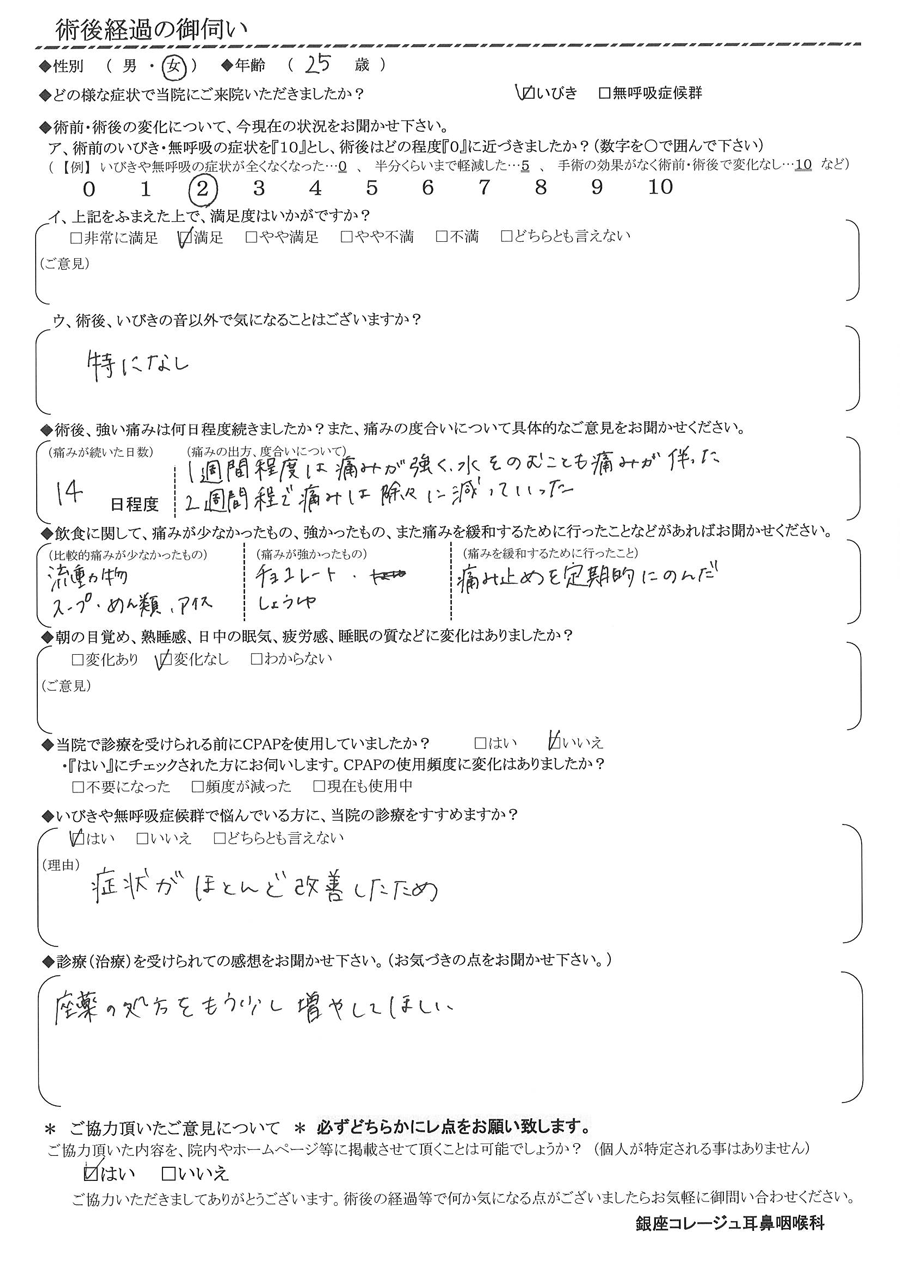 術後経過の御伺い
◆性別 （ 男 ・ 女 ） ◆年齢 （ 25 歳 ）
◆どの様な症状で当院にご来院いただきましたか？ ☑いびき □無呼吸症候群
◆術前・術後の変化について、今現在の状況をお聞かせ下さい。
ア、術前のいびき・無呼吸の症状を『10』とし、術後はどの程度『0』に近づきましたか？（数字を○で囲んで下さい）
（【例】いびきや無呼吸の症状が全くなくなった…0 、 半分くらいまで軽減した…5 、 手術の効果がなく術前・術後で変化なし…10 など）
0 1 2 3 4 5 6 7 8 9 10
イ、上記をふまえた上で、満足度はいかがですか？
□非常に満足 ☑満足 □やや満足 □やや不満 □不満 □どちらとも言えない
（ご意見）
ウ、術後、いびきの音以外で気になることはございますか？
特になし
◆術後、強い痛みは何日程度続きましたか？また、痛みの度合いについて具体的なご意見をお聞かせください。
（痛みが続いた日数） （痛みの出方、度合いについて）
14 日程度 1週間程度は痛みが強く、水をのむことも痛みが伴った
2週間程で痛みは除々に減っていった
◆飲食に関して、痛みが少なかったもの、強かったもの、また痛みを緩和するために行ったことなどがあればお聞かせください。
（比較的痛みが少なかったもの） （痛みが強かったもの） （痛みを緩和するために行ったこと）
流動物 チョコレート ・ 痛み止めを定期的にのんだ
スープ・めん類、アイス しょうゆ
◆朝の目覚め、熟睡感、日中の眠気、疲労感、睡眠の質などに変化はありましたか？
□変化あり ☑変化なし □わからない
（ご意見）
◆当院で診療を受けられる前にCPAPを使用していましたか？ □はい ☑いいえ
・『はい』にチェックされた方にお伺いします。CPAPの使用頻度に変化はありましたか？
□不要になった □頻度が減った □現在も使用中
◆いびきや無呼吸症候群で悩んでいる方に、当院の診療をすすめますか？
☑はい □いいえ □どちらとも言えない
（理由）
症状がほとんど改善したため
◆診療（治療）を受けられての感想をお聞かせ下さい。（お気づきの点をお聞かせ下さい。）
座薬の処方をもう少し増やしてほしい
＊ ご協力頂いたご意見について ＊ 必ずどちらかにレ点をお願い致します。
ご協力頂いた内容を、院内やホームページ等に掲載させて頂くことは可能でしょうか？ （個人が特定される事はありません）
☑はい □いいえ
ご協力いただきましてありがとうございます。術後の経過等で何か気になる点がございましたらお気軽に御問い合わせください。
銀座コレージュ耳鼻咽喉科